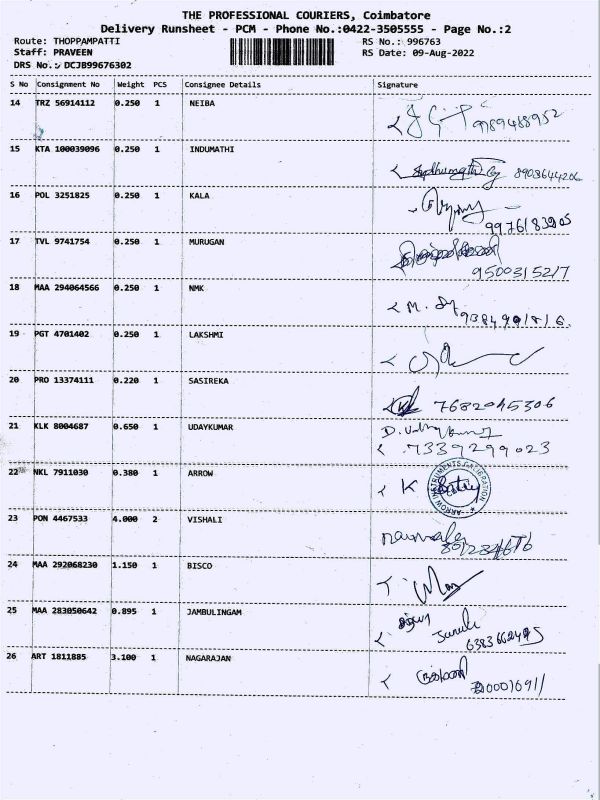 THE PROFESSIONAL COURIERS, Coimbatore
Delivery Runsheet - PCM - Phone No.:0422-3505555 - Page No.:2
Route: THOPPAMPATTI RS No.: 996763
Staff: PRAVEEN RS Date: 09-Aug-2022
DRS No.: DCJB99676302
S No Consignment No Weight PCS Consignee Details Signature
14 TRZ 56914112 0.250 1 NEIBA
9789488952
15 KTA 100039096 0.250 1 INDUMATHI
8903644206
16 POL 3251825 0.250 1 KALA
17 TVL 9741754 0.250 1 MURUGAN
9500315217
18 MAA 294064566 0.250 1 NMK
19 PGT 4701402 0.250 1 LAKSHMI
20 PRO 13374111 0.220 1 SASIREKA
7682045306
21 KLK 8004687 0.650 1 UDAYKUMAR
7339299023
22 NKL 7911030 0.380 1 ARROW
K
23 PON 4467533 4.000 2 VISHALI
24 MAA 292068230 1.150 1 BISCO
25 MAA 283050642 0.895 1 JAMBULINGAM
26 ART 1811885 3.100 1 NAGARAJAN